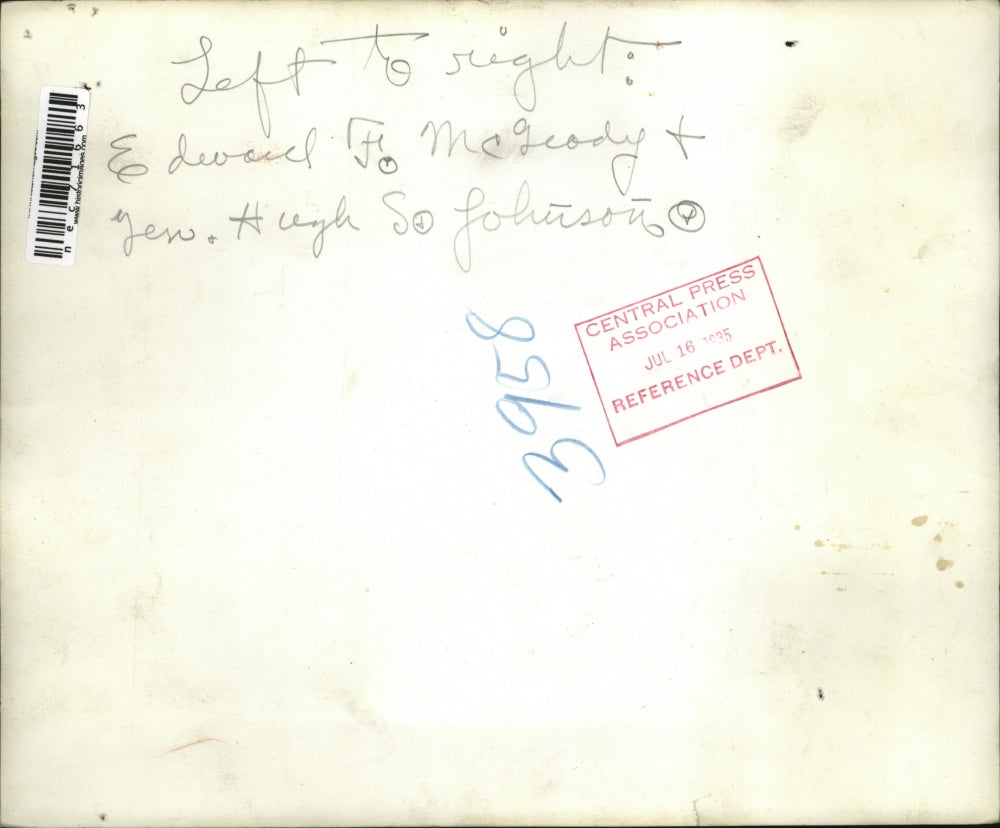 Left to right:
Edward F. McGrady +
Gen. Hugh S. Johnson.
CENTRAL PRESS
ASSOCIATION
JUL 16 1935
REFERENCE DEPT.
3958
www.historicimages.com